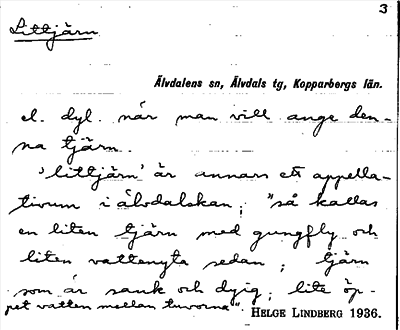 3
Littjärn
Älvdalens sn, Älvdals tg, Kopparbergs län.
el. dyl. när man vill ange den-
na tjärn.
'littjärn' är annars ett appella-
tivum i älvdalskan; "så kallas
en liten tjärn med gungfly och
liten vattenyta sedan; tjärn
som är sank och dyig; lite öp-
pet vatten mellan tuvorna". HELGE LINDBERG 1936.